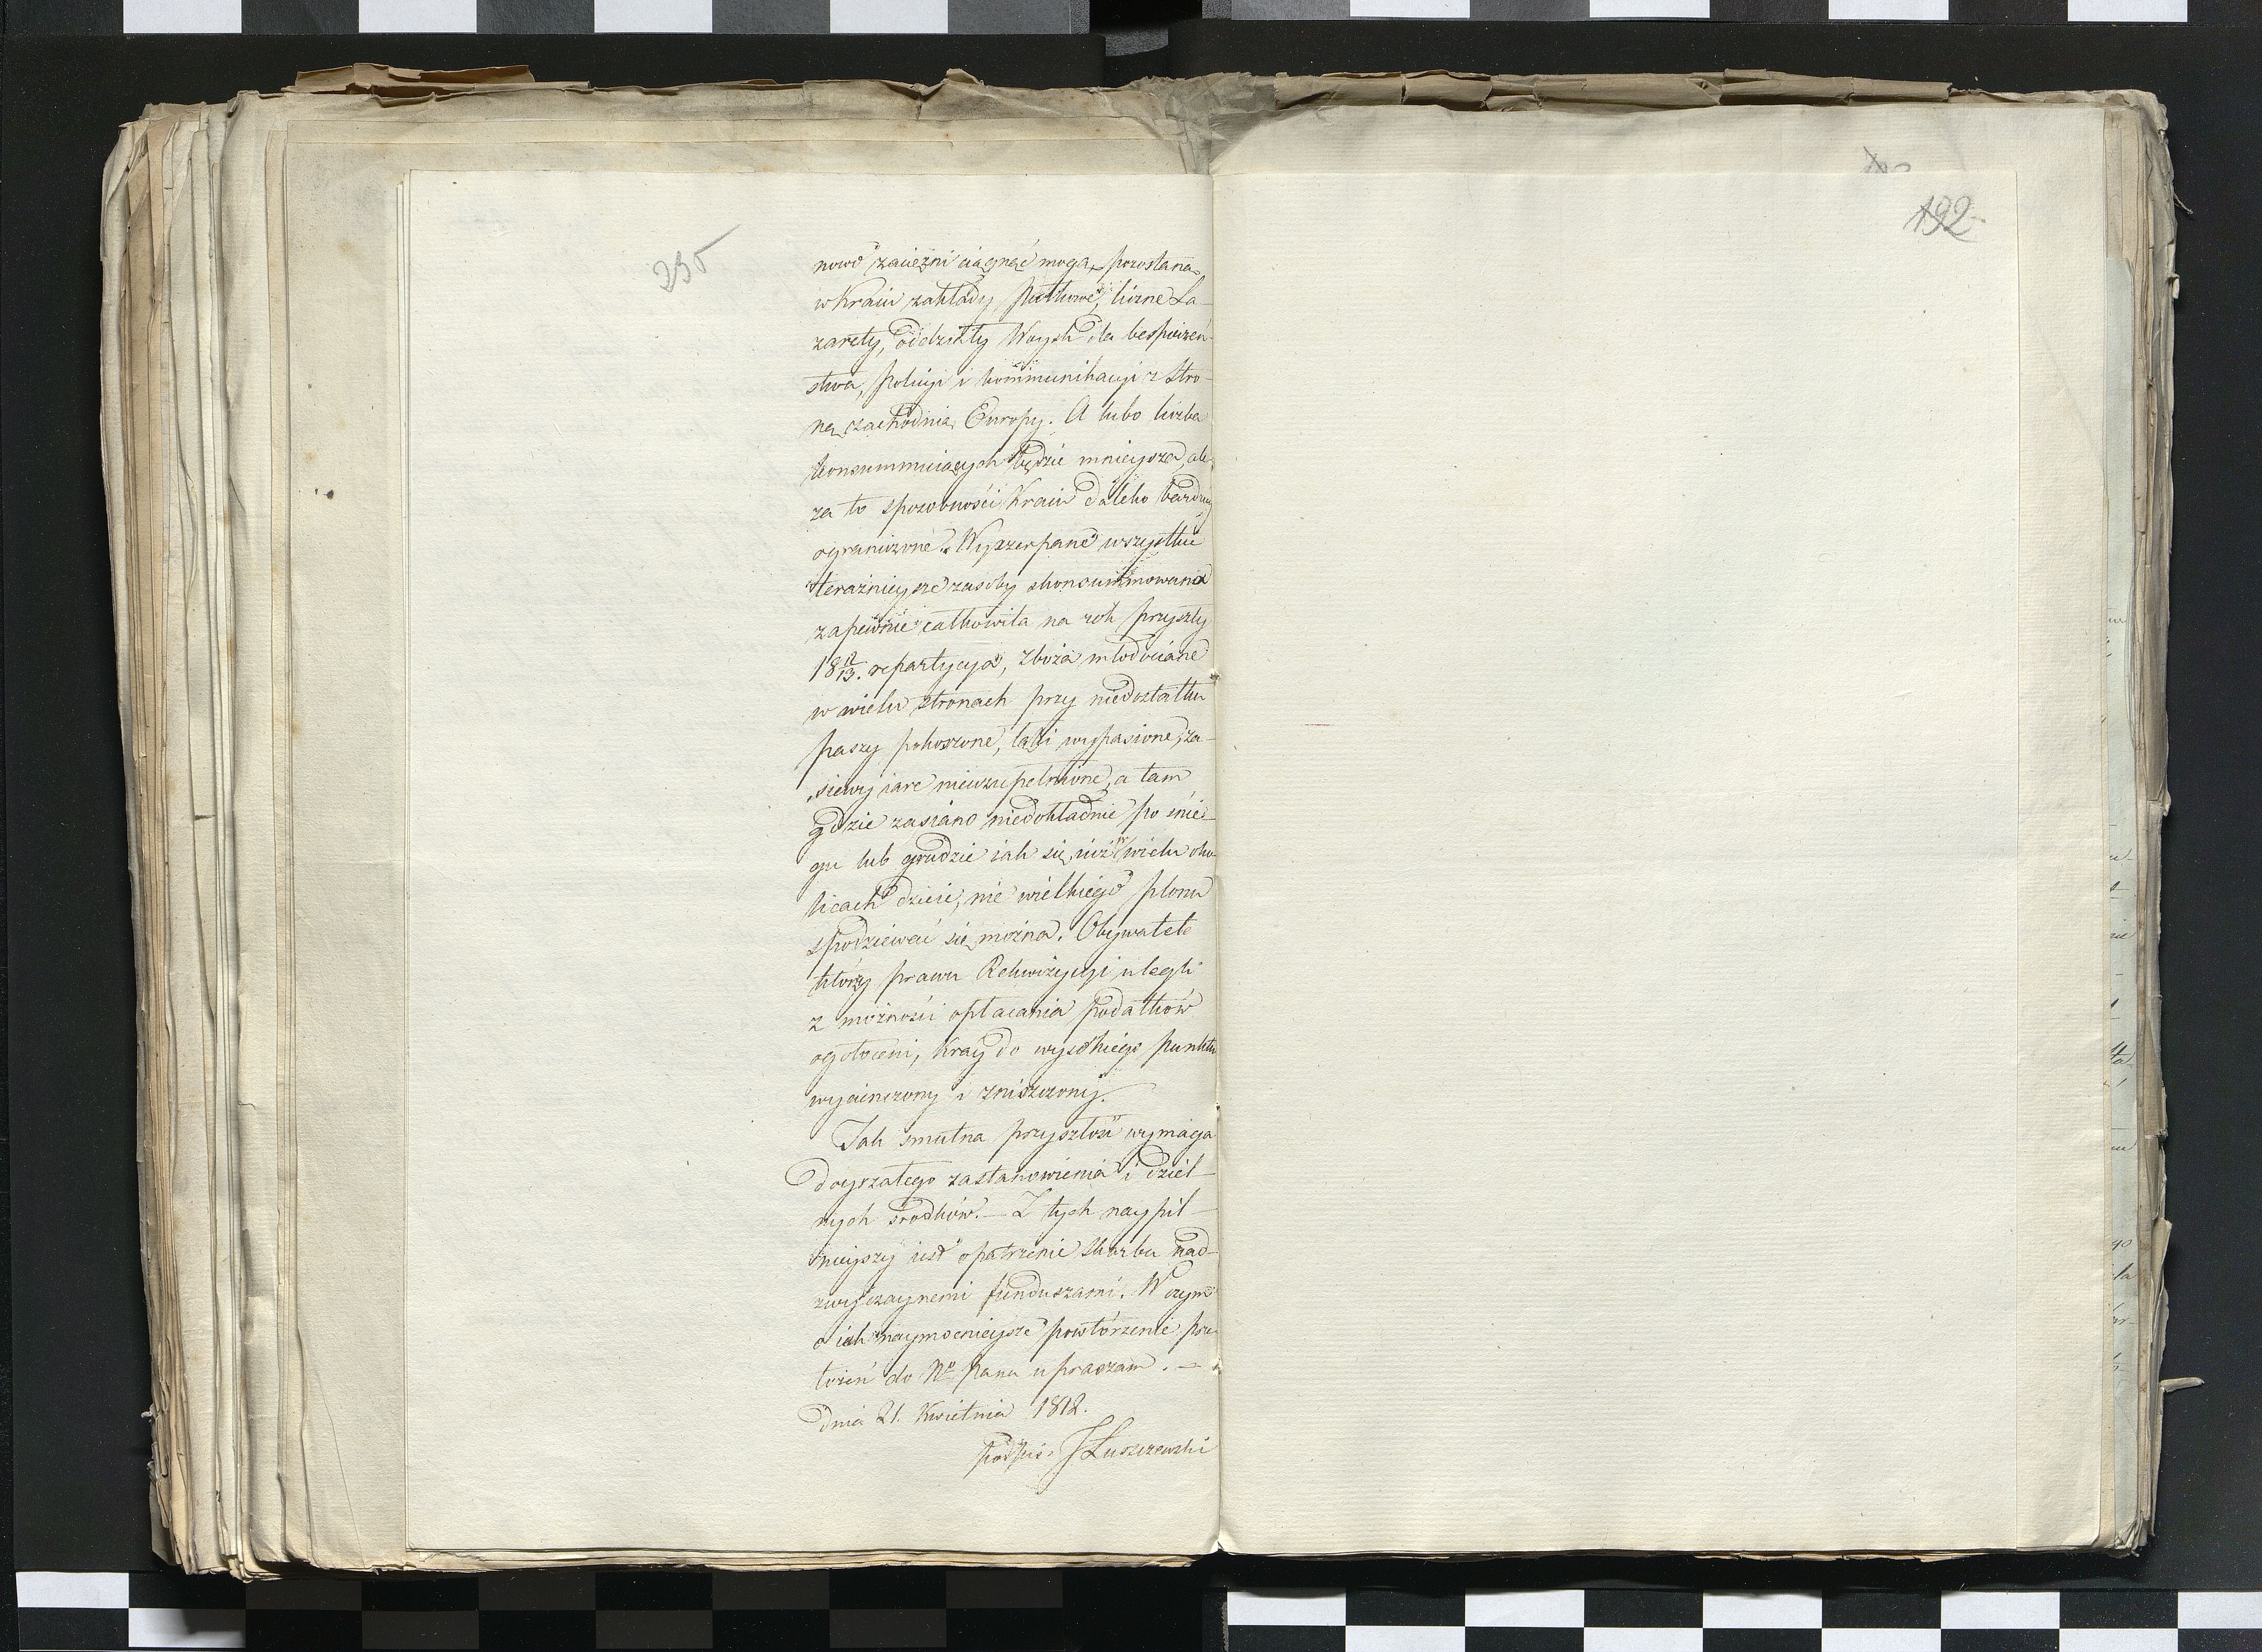 235
nowo zaciężni ciągnąć mogą, pozostaną
w Kraiu zakłady pułkowe, liczne La-
zarety, oddziały Woysk dla bespieczeń-
stwa, policyi i kommunikacyi z stro-
ną zachodnią Europy. A lubo liczba
konsummuiących będzie mnieysza, ale
za to sposobności Kraiu daleko bardziey
ograniczone. Wyczerpane wszystkie
teraźnieysze zasoby skonsummowana
zapewnie całkowita na rok przyszły
18 12/13. repartycya, zboża młodociane
w wielu stronach przy niedostatku
paszy pokoszone, łąki wypasione, za-
siewy iare nieuzupełnione, a tam
gdzie zasiano niedokładnie po śnie-
gu lub grudzie iak się iuż w wielu oko-
licach dzieie, nie wielkiego plonu
spodziewać się można. Obywatele
którzy prawu Rekwizycyi ulegli
z możności opłacania podatków
ogołoceni, Kray do wysokiego punktu
wycieńczony i zniszczony.
Tak smutna przyszłość wymaga
doyrzałego zastanowienia i dziel-
nych środków. — Z tych naypil-
nieyszy iest opatrzenie Skarbu nad-
zwyczaynemi funduszami. W czym
o iak naymocnieysze powtórzenie prze-
łożeń do No Pana upraszam. —
Dnia 21. Kwietnia 1812.
podpis. J Łuszczewski
192